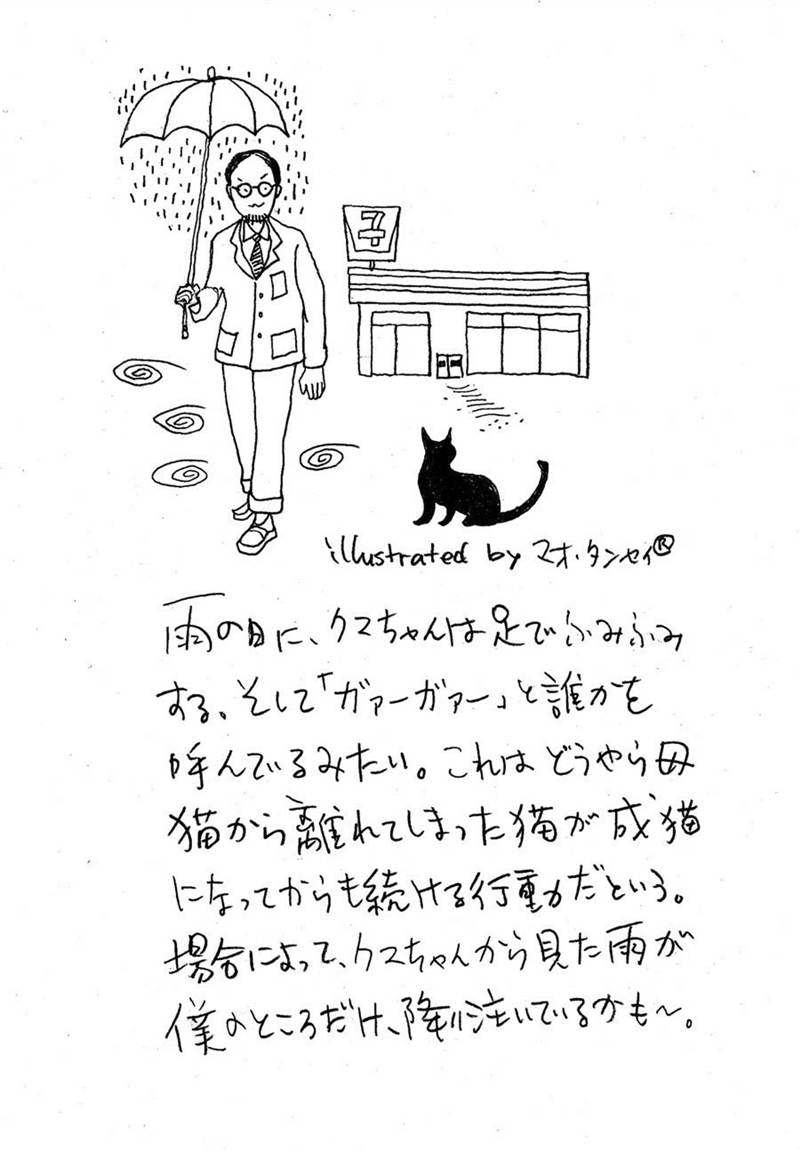 子
illustrated by マオ・タンセイ®
雨の日に、クスちゃんは足でふみふみ
する。そして「ガァーガァー」と誰かを
呼んでいるみたい。これはどうやら母
猫から離れてしまった猫が成猫
になってからも続ける行動だという。
場合によって、クスちゃんから見た雨が
僕のところだけ、降り注いでいるかも〜。